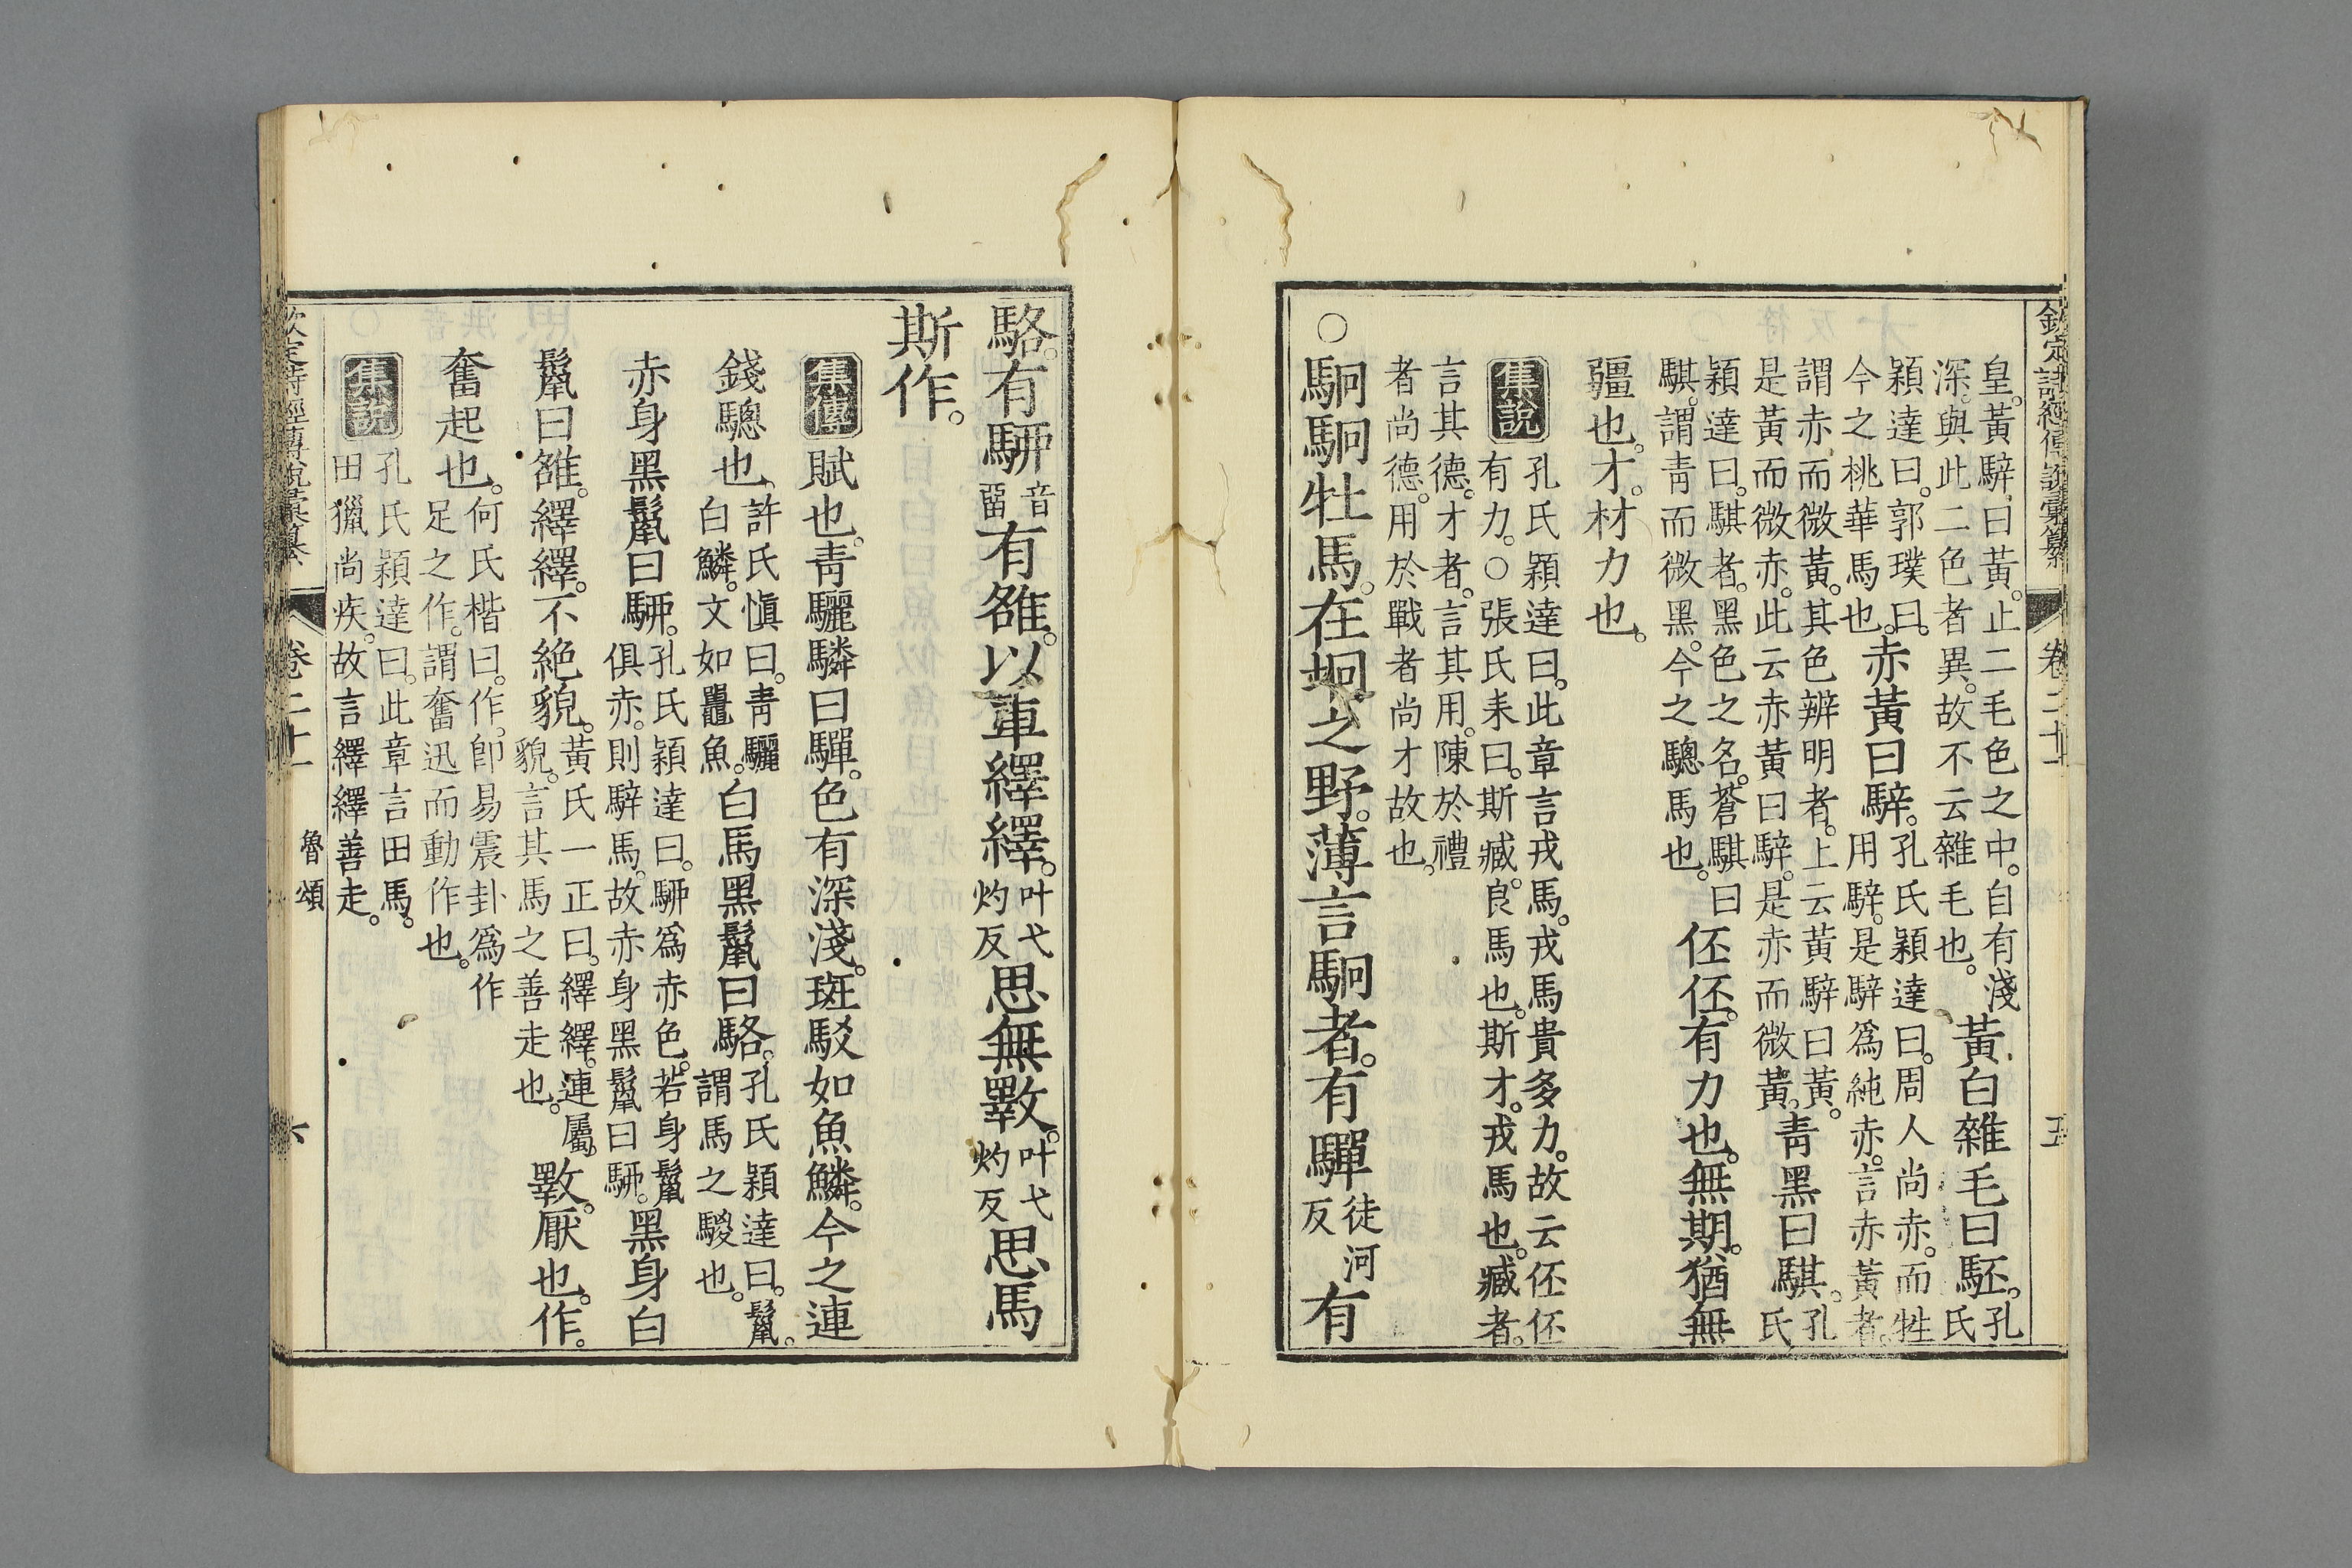 欽定詩經傳說彙纂 卷二十一 五
皇。黃騂曰黃。止二毛色之中。自有淺深。與此二色者異。故不云雜毛也。黃白雜毛曰駓。孔氏
穎達曰。郭璞曰。今之桃華馬也。赤黃曰騂。孔氏穎達曰。周人尚赤。而牲用騂。是騂爲純赤。言赤黃者。
謂赤而微黃。其色辨明者。上云黃騂曰黃。是黃而微赤。此云赤黃曰騂。是赤而微黃。靑黑曰騏。孔氏
穎達曰。騏者。黑色之名。蒼騏曰騏。謂靑而微黑。今之驄馬也。伾伾。有力也。無期。猶無
疆也。才。材力也。
集說 孔氏穎達曰。此章言戎馬。戎馬貴多力。故云伾伾有力。○張氏耒曰。斯臧。良馬也。斯才。戎馬也。臧者。
言其德。才者。言其用。陳於禮者尚德。用於戰者尚才故也。
○駉駉牡馬。在坰之野。薄言駉者。有驒徒河反有
駱。有駵音留有雒。以車繹繹。叶弋灼反思無斁。叶弋灼反思馬
斯作。
集傳 賦也。靑驪驎曰驒。色有深淺。斑駁如魚鱗。今之連
錢驄也。許氏愼曰。靑驪白鱗。文如鼉魚。白馬黑鬛曰駱。孔氏穎達曰。鬛。謂馬之騣也。
赤身黑鬛曰駵。孔氏穎達曰。駵爲赤色。若身鬛俱赤。則騂馬。故赤身黑鬛曰駵。黑身白
鬛曰雒。繹繹。不絕貌。黃氏一正曰。繹繹。連屬貌。言其馬之善走也。斁。厭也。作。
奮起也。何氏楷曰。作。卽易震卦爲作足之作。謂奮迅而動作也。
集說 孔氏穎達曰。此章言田馬。田獵尚疾。故言繹繹善走。
欽定詩經傳說彙纂 卷二十一 魯頌 六